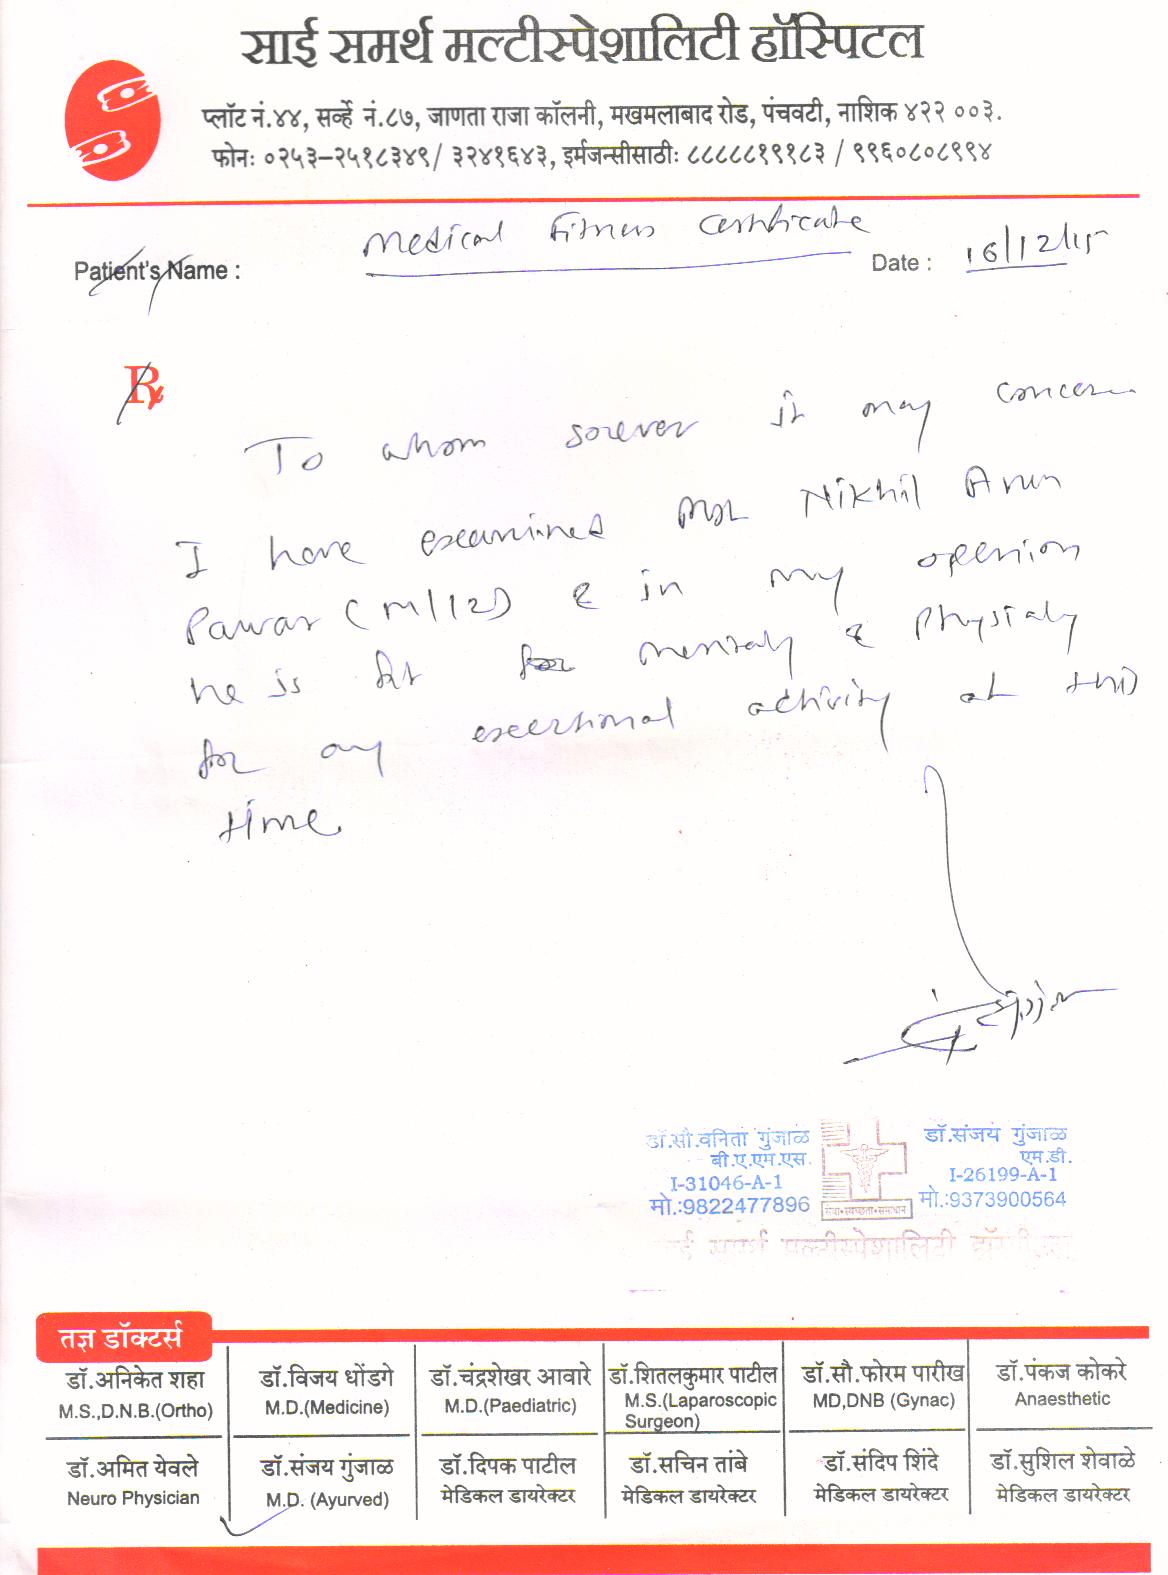 साई समर्थ मल्टीस्पेशालिटी हॉस्पिटल
प्लॉट नं.४४, सर्व्हे नं.८७, जाणता राजा कॉलनी, मखमलाबाद रोड, पंचवटी, नाशिक ४२२ ००३.
फोनः ०२५३-२५१८३४९/ ३२४१६४३, इर्मजन्सीसाठीः ८८८८८१९१८३ / ९९६०८०८९९४
Medical Fitness Certificate
Patient's Name :
Date : 16/12/15
Rx
To whom soever it may concern
I have examined Mr Nikhil Arun
Pawar (M/12) & in my openion
he is fit for mentaly & physialy
for any excertional activity at this
time.
डॉ.सौ.वनिता गुंजाळ
बी.ए.एम.एस.
I-31046-A-1
मो.:9822477896
सेवा•स्वच्छता•समाधान
डॉ.संजय गुंजाळ
एम.डी.
I-26199-A-1
मो.:9373900564
साई समर्थ मल्टीस्पेशालिटी हॉस्पीटल
तज्ञ डॉक्टर्स
डॉ.अनिकेत शहा
M.S.,D.N.B.(Ortho)
डॉ.विजय धोंडगे
M.D.(Medicine)
डॉ.चंद्रशेखर आवारे
M.D.(Paediatric)
डॉ.शितलकुमार पाटील
M.S.(Laparoscopic
Surgeon)
डॉ.सौ.फोरम पारीख
MD,DNB (Gynac)
डॉ.पंकज कोकरे
Anaesthetic
डॉ.अमित येवले
Neuro Physician
डॉ.संजय गुंजाळ
M.D. (Ayurved)
डॉ.दिपक पाटील
मेडिकल डायरेक्टर
डॉ.सचिन तांबे
मेडिकल डायरेक्टर
डॉ.संदिप शिंदे
मेडिकल डायरेक्टर
डॉ.सुशिल शेवाळे
मेडिकल डायरेक्टर